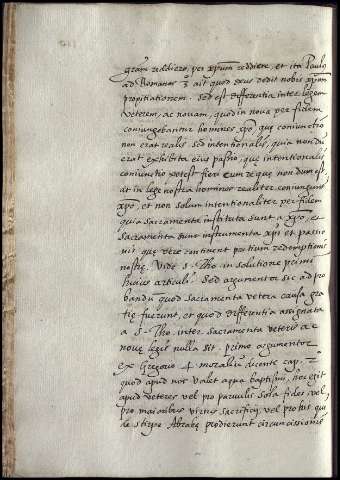 gratiam reddiero, per xpum reddere, et ita Paulus
ad Romanos 3 ait quod deus dedit nobis xpum
propitiationem. sed est differentia inter legem
veterem, ac novam, quod in nova per fidem
coniungebantur homines xpo, que coniunctio
non erat realis sed intentionalis, quia nondu
erat exhibita eius passio, que intentionalis
coniunctio potest fieri cum re que nondum est,
at in lege nostra homines realiter coniungunt
xpo, et non solum intentionaliter per fidem
quia sacramenta instituta sunt a xpo, et
sacramenta sunt instrumenta xpi et passio
nis que vere continent pretium redemptionis
nostre. Vide S. Tho. in solutione primi
huius articuli. Sed argumentor sic ad pro
bandu quod sacramenta vetera causa gra
tie fuerunt, et quod differentia assignata
a S. Tho. inter sacramenta veteris ac
nove legis nulla sit. primo argumentor
ex Gregorio 4 moralium dicente cap.
quod apud nos valet aqua baptismi, hoc egit
apud veteres vel pro parvulis sola fides, vel
pro maioribus virtus sacrificij, vel pro his qui
de stirpe Abrahe prodierunt circuncisionis